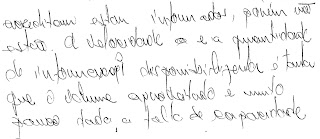 acreditam estar informados, porém não
estão. A velocidade e a quantidade
de informações disponibilizada é tanta
que o volume aproveitado é muito
pouco dado a falta de capacidade